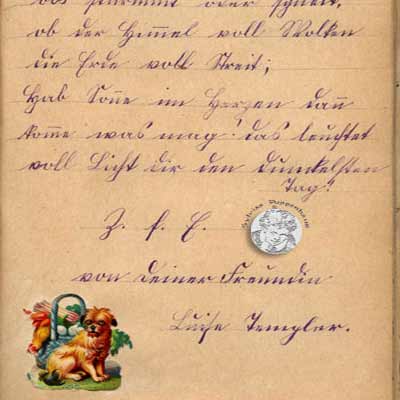 ob's stürmt oder schneit,
ob der Himmel voll Wolken
die Erde voll Streit;
Hab Sonne im Herzen dann
komme was mag! das leuchtet
voll Licht dir den dunkelsten
Tag!
Z. f. E.
Sylvias Puppenhaus
von Deiner Freundin
Luise Templer.